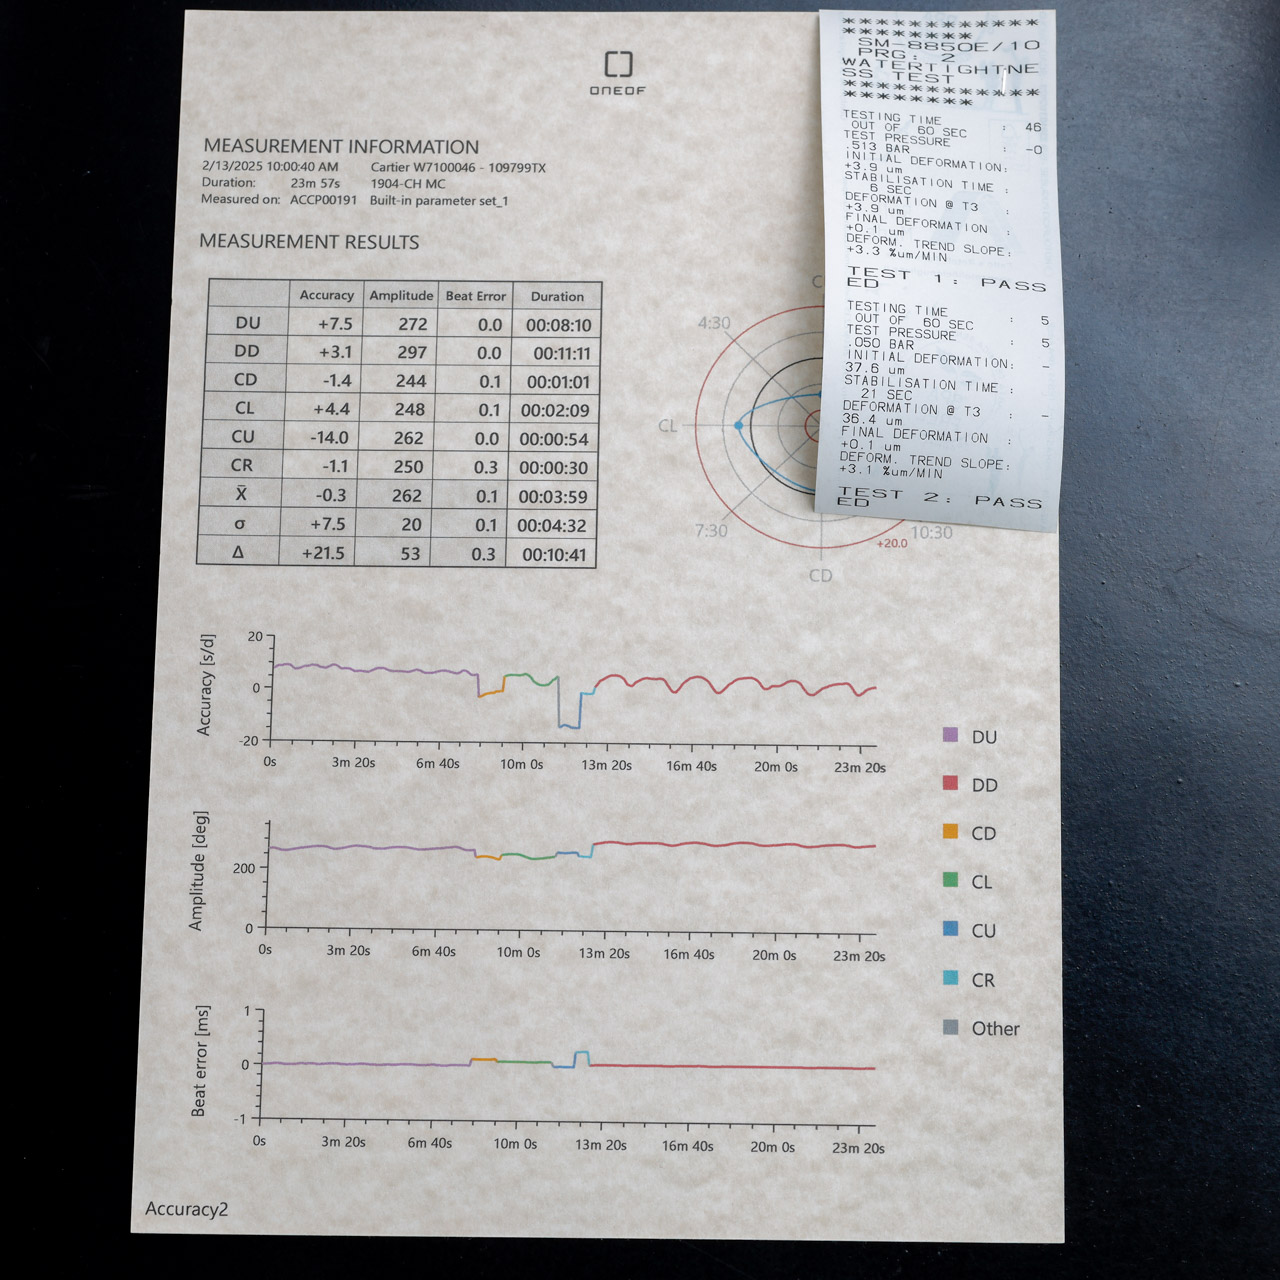 ONEOF
MEASUREMENT INFORMATION
2/13/2025 10:00:40 AM Cartier W7100046 - 109799TX
Duration: 23m 57s 1904-CH MC
Measured on: ACCP00191 Built-in parameter set_1
MEASUREMENT RESULTS
Accuracy Amplitude Beat Error Duration
DU +7.5 272 0.0 00:08:10
DD +3.1 297 0.0 00:11:11
CD -1.4 244 0.1 00:01:01
CL +4.4 248 0.1 00:02:09
CU -14.0 262 0.0 00:00:54
CR -1.1 250 0.3 00:00:30
X̄ -0.3 262 0.1 00:03:59
σ +7.5 20 0.1 00:04:32
Δ +21.5 53 0.3 00:10:41
4:30
CL
7:30
CD
10:30
+20.0
************
********
SM-8850E/10
PRG: 2
WATERTIGHTNE
SS TEST
************
********
TESTING TIME : 46
OUT OF 60 SEC
TEST PRESSURE : -0
.513 BAR
INITIAL DEFORMATION:
+3.9 um
STABILISATION TIME :
6 SEC
DEFORMATION @ T3 :
+3.9 um
FINAL DEFORMATION :
+0.1 um
DEFORM. TREND SLOPE:
+3.3 %um/MIN
TEST 1: PASS
ED
TESTING TIME : 5
OUT OF 60 SEC
TEST PRESSURE : 5
.050 BAR
INITIAL DEFORMATION: -
37.6 um
STABILISATION TIME :
21 SEC
DEFORMATION @ T3 : -
36.4 um
FINAL DEFORMATION :
+0.1 um
DEFORM. TREND SLOPE:
+3.1 %um/MIN
TEST 2: PASS
ED
Accuracy [s/d]
20
0
-20
0s 3m 20s 6m 40s 10m 0s 13m 20s 16m 40s 20m 0s 23m 20s
Amplitude [deg]
200
0
0s 3m 20s 6m 40s 10m 0s 13m 20s 16m 40s 20m 0s 23m 20s
Beat error [ms]
1
0
-1
0s 3m 20s 6m 40s 10m 0s 13m 20s 16m 40s 20m 0s 23m 20s
DU
DD
CD
CL
CU
CR
Other
Accuracy2